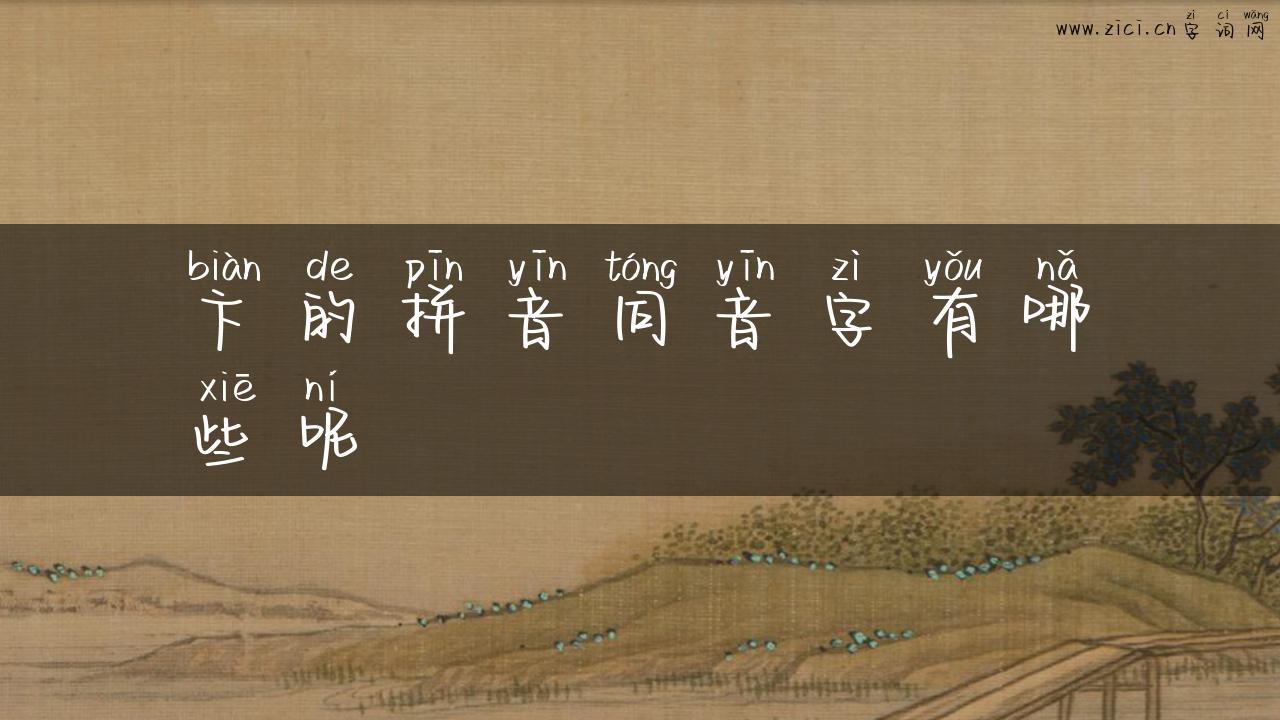 zì cí wǎng
www.zici.cn字词网
biàn de pīn yīn tóng yīn zì yǒu nǎ
卞的拼音同音字有哪
xiē ní
些呢